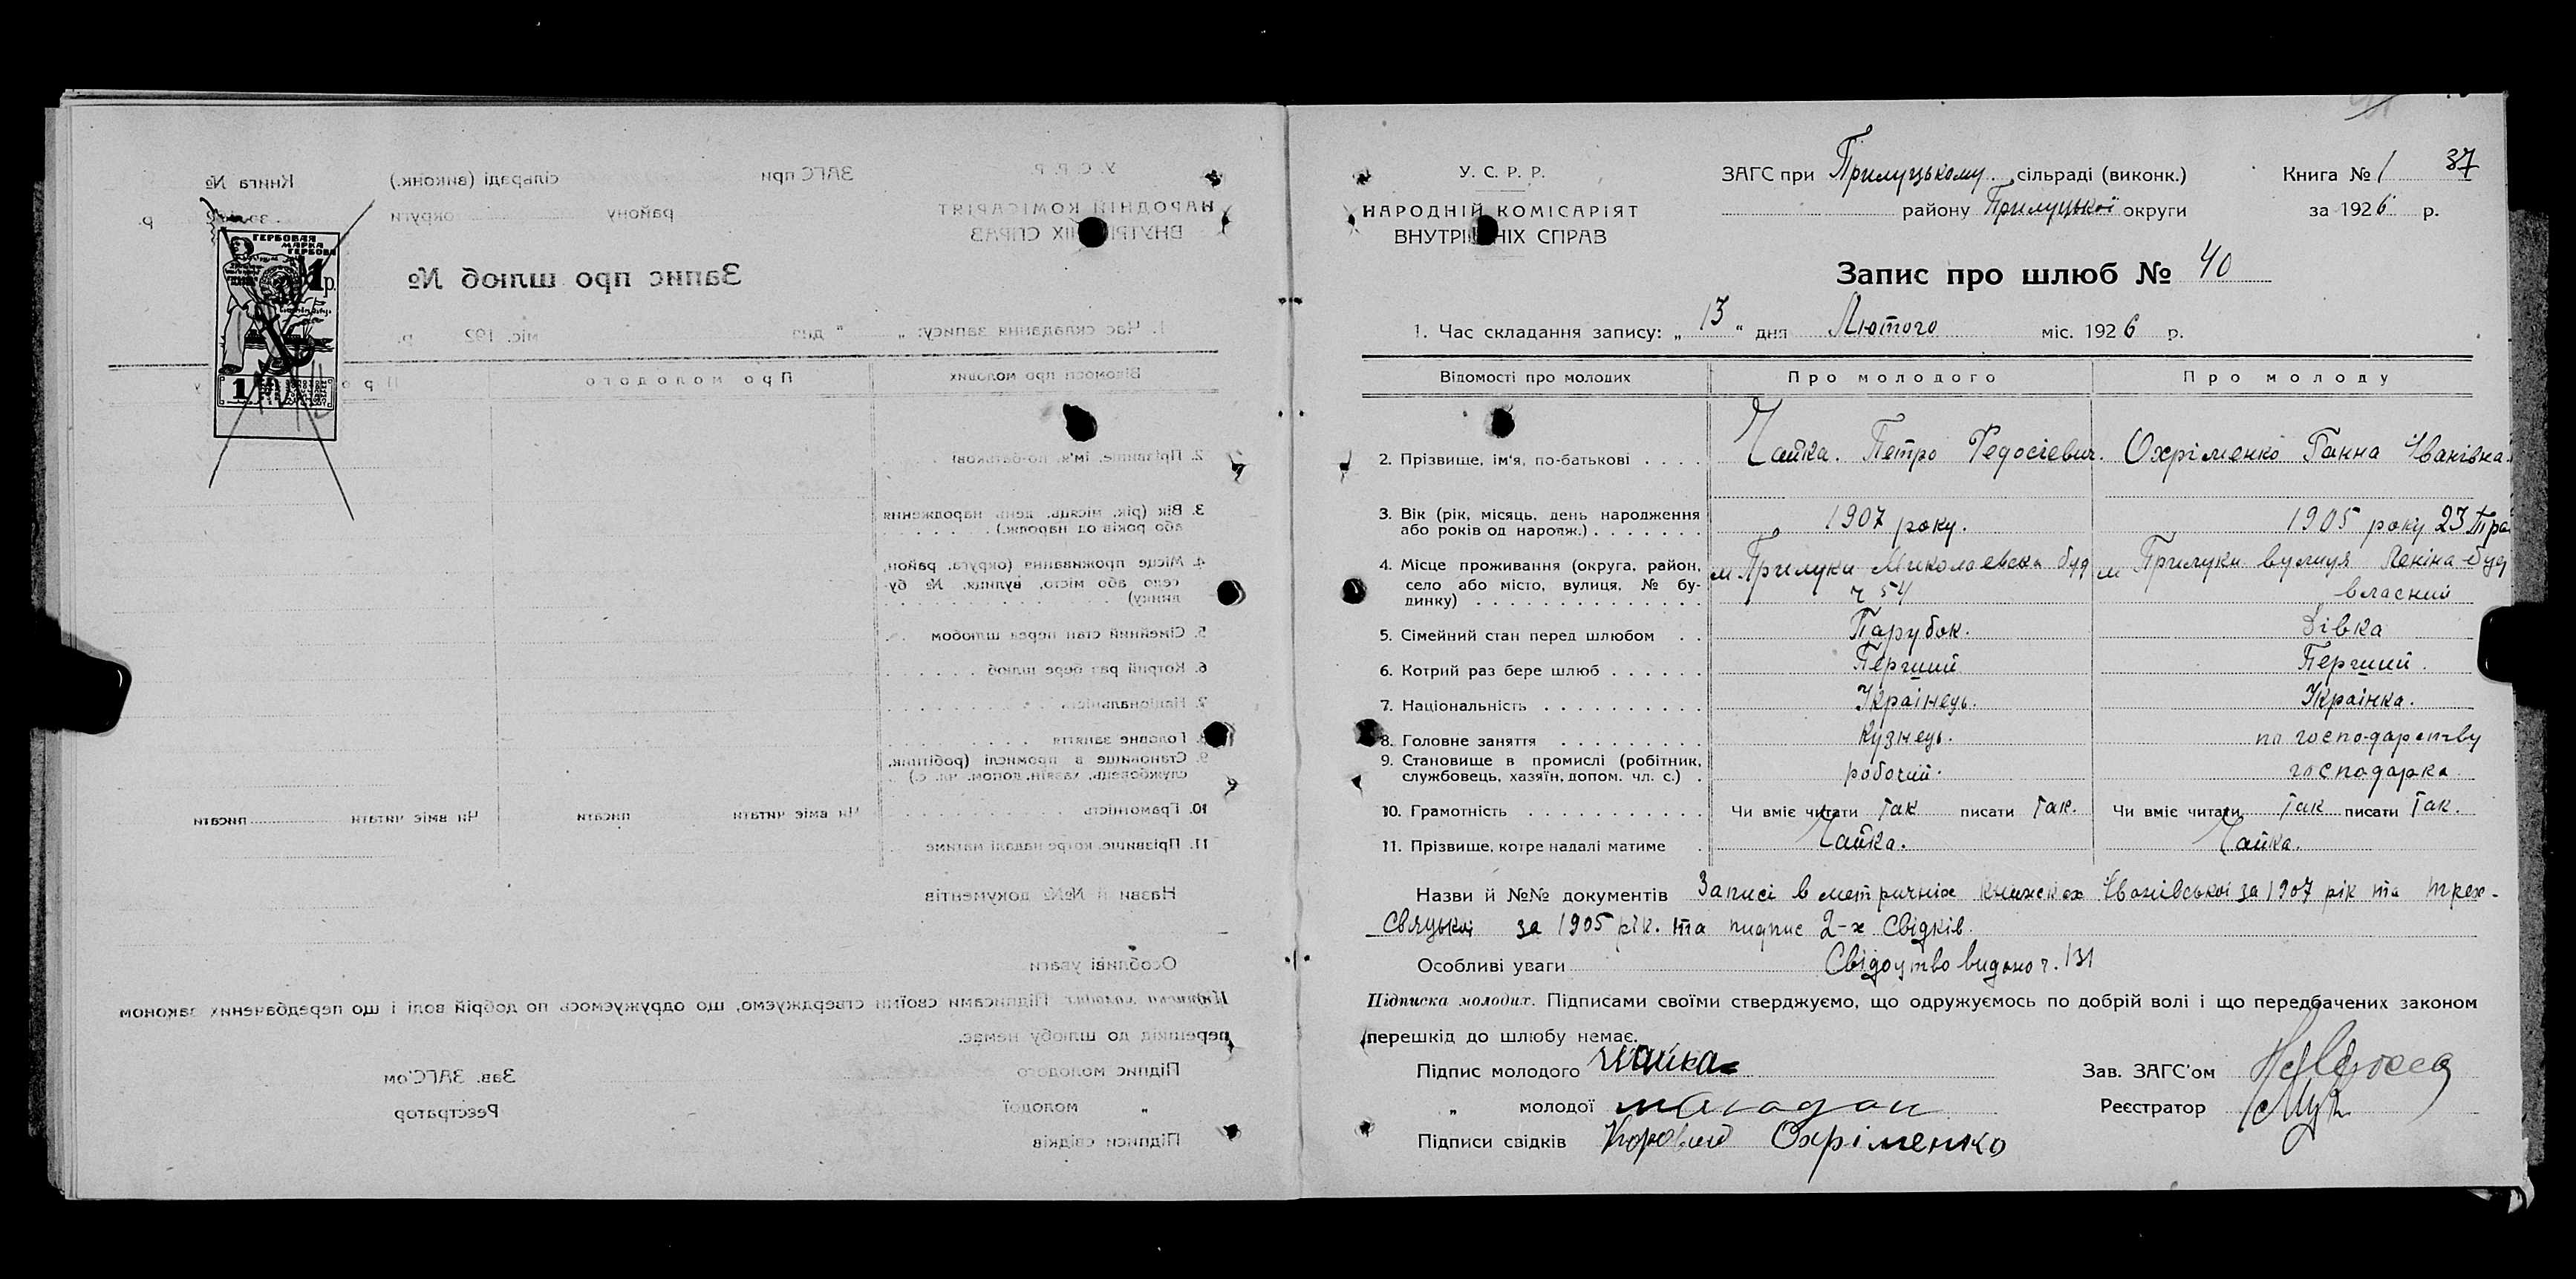 ГЕРБОВАЯ
МАРКА
ГЕРБОВА
1 р.
1
У. С. Р. Р.
НАРОДНІЙ КОМІСАРІЯТ
ВНУТРІШНІХ СПРАВ
ЗАГС при Прилуцькому сільраді (виконк.)
району Прилуцької округи
Книга № 1 37
за 1926 р.
Запис про шлюб № 40
1. Час складання запису: „ 13 “ дня Лютого міс. 1926 р.
Відомості про молодих Про молодого Про молоду
2. Прізвище, ім'я, по-батькові . . . . Чайка. Петро Федосієвич. Охріменко Ганна Іванівна.
3. Вік (рік, місяць, день народження
або років од народж.) . . . . . . . 1907 року. 1905 року 23 Тра
4. Місце проживання (округа, район, м Прилуки Миколаевська буд м Прилуки вулиця Леніна буд
село або місто, вулиця, № бу- ч 54 власний
динку) . . . . . . . . . . . . . .
5. Сімейний стан перед шлюбом . . Парубок. Дівка
6. Котрий раз бере шлюб . . . . . . Перший Перший.
7. Національність . . . . . . . . . . Украінець. Украінка.
8. Головне заняття . . . . . . . . . Кузнець. по господарству
9. Становище в промислі (робітник,
службовець, хазяїн, допом. чл. с.) . робочий. господарка
10. Грамотність . . . . . . . . . . . Чи вміє читати Так писати Так. Чи вміє читати Так писати Так.
11. Прізвище, котре надалі матиме . Чайка. Чайка.
Назви й №№ документів Записі в метричних книжках Іванівської за 1907 рік та трех-
Свяцької за 1905 рік. та підпис 2-х Свідків.
Особливі уваги Свідоцтво видано ч. 131
Підписка молодих. Підписами своїми стверджуємо, що одружуємось по добрій волі і що передбачених законом
перешкід до шлюбу немає.
Підпис молодого Чайка
Зав. ЗАГС'ом
„ молодої
Реєстратор
Підписи свідків Охріменко